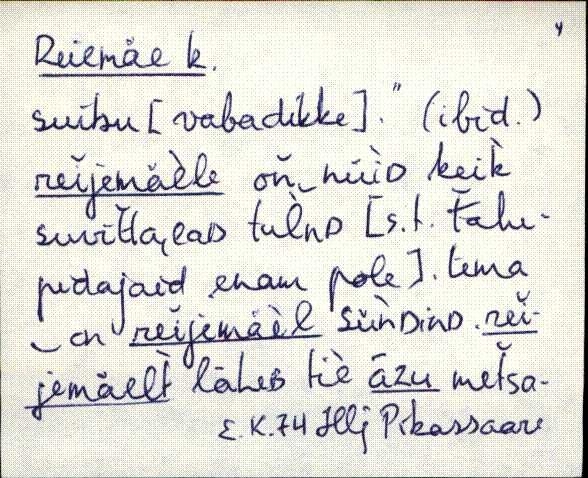 4
Reiemäe k.
suibu [vabadikke]." (ibid.)
reijemäèle oň‿nüìD keìk
suviťťa,eaD tulnD [s.t. ťalu-
pidajaid enam pole]. tema
‿on reijemäèl süňDinD. rei-
jemäelt lähe͔B tìe āzu metsa-
E.K.74 Illj Pikassaare